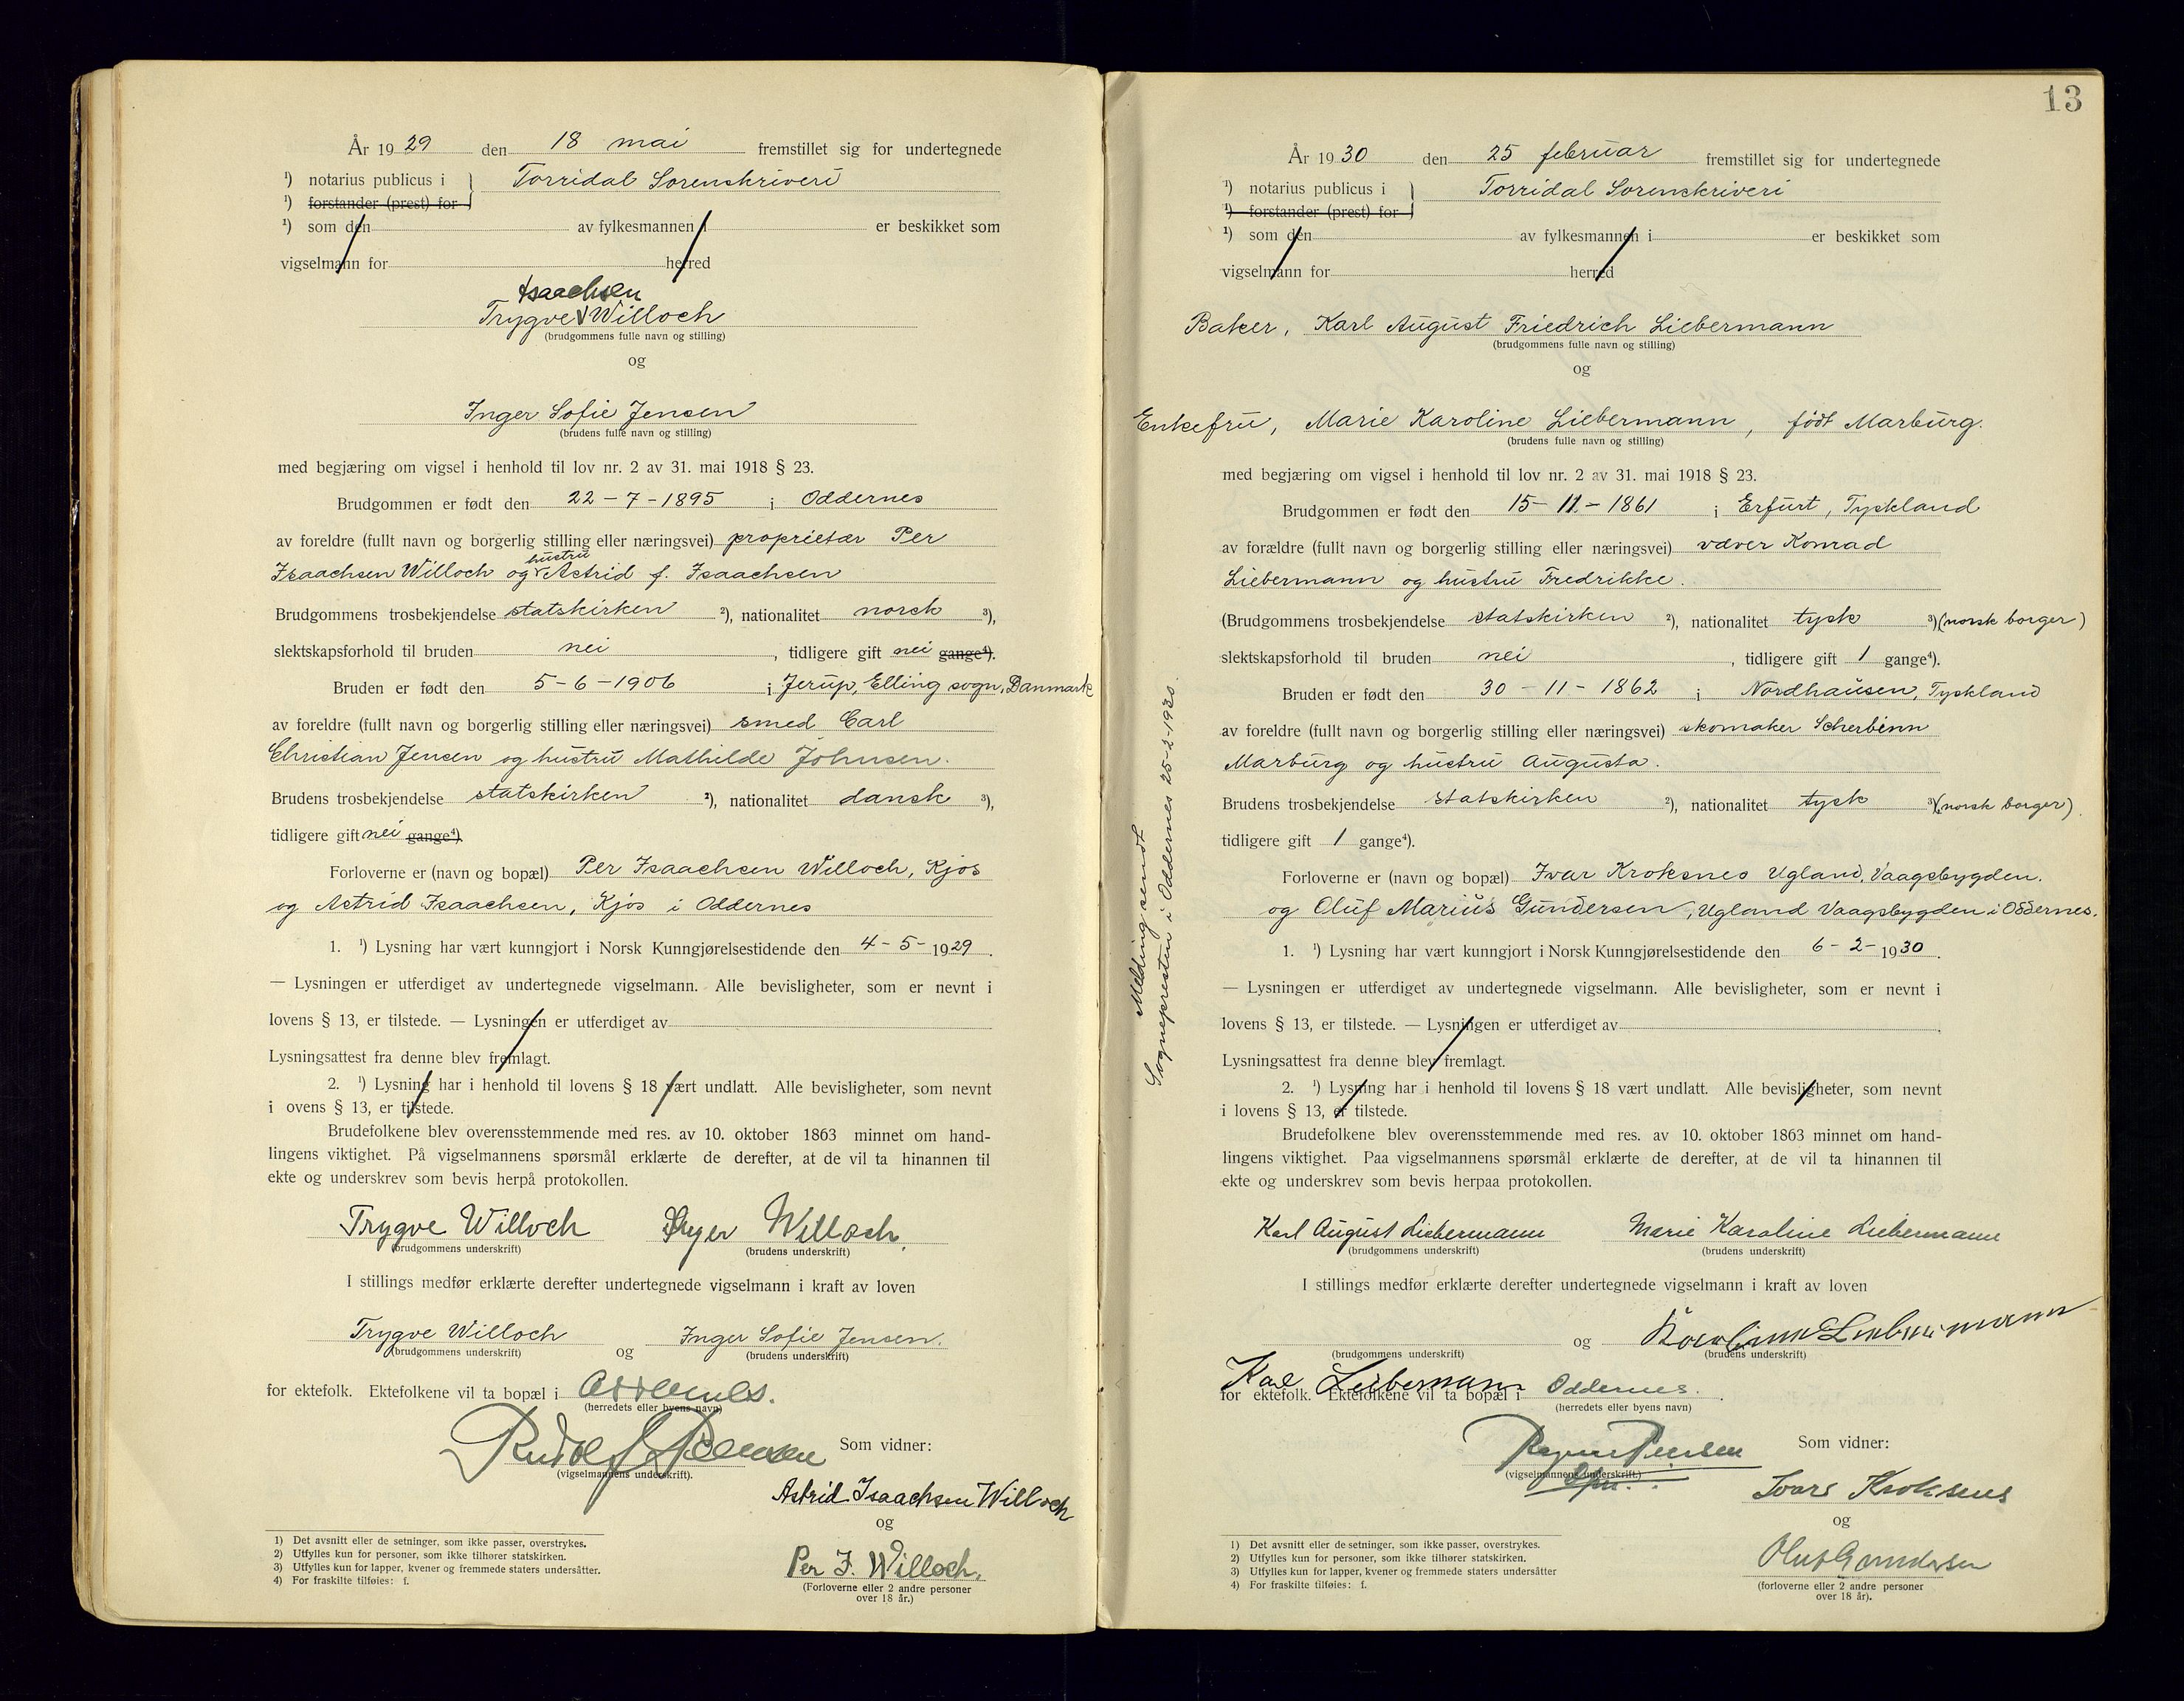 År 1929 den 18 mai fremstillet sig for undertegnede
¹) notarius publicus i } Torridal Sorenskriveri
¹) forstander (prest) for
¹) som den av fylkesmannen i er beskikket som
vigselmann for herred
Isaachsen
Trygve V Willoch
(brudgommens fulle navn og stilling)
og
Inger Sofie Jensen
(brudens fulle navn og stilling)
med begjæring om vigsel i henhold til lov nr. 2 av 31. mai 1918 § 23.
Brudgommen er født den 22-7-1895 i Oddernes
av foreldre (fullt navn og borgerlig stilling eller næringsvei) proprietær Per
hustru
Isaachsen Willoch og Astrid f. Isaachsen
Brudgommens trosbekjendelse statskirken ²), nationalitet norsk ³),
slektskapsforhold til bruden nei, tidligere gift nei gange⁴).
Bruden er født den 5-6-1906 i Jerup, Elling sogn, Danmark
av foreldre (fullt navn og borgerlig stilling eller næringsvei) smed Carl
Christian Jensen og hustru Mathilde Johnsen.
Brudens trosbekjendelse statskirken ²), nationalitet dansk ³),
tidligere gift nei gange⁴).
Forloverne er (navn og bopæl) Per Isaachsen Willoch, Kjos
og Astrid Isaachsen, Kjos i Oddernes
1. ¹) Lysning har vært kunngjort i Norsk Kunngjørelsestidende den 4-5-1929.
— Lysningen er utferdiget av undertegnede vigselmann. Alle bevisligheter, som er nevnt i
lovens § 13, er tilstede. — Lysningen er utferdiget av
Lysningsattest fra denne blev fremlagt.
2. ¹) Lysning har i henhold til lovens § 18 vært undlatt. Alle bevisligheter, som nevnt
i ovens § 13, er tilstede.
Brudefolkene blev overensstemmende med res. av 10. oktober 1863 minnet om hand-
lingens viktighet. På vigselmannens spørsmål erklærte de derefter, at de vil ta hinannen til
ekte og underskrev som bevis herpå protokollen.
Trygve Willoch Inger Willoch.
(brudgommens underskrift) (brudens underskrift)
I stillings medfør erklærte derefter undertegnede vigselmann i kraft av loven
Trygve Willoch og Inger Sofie Jensen.
(brudgommens underskrift) (brudens underskrift)
for ektefolk. Ektefolkene vil ta bopæl i Oddernes.
(herredets eller byens navn)
Som vidner:
(vigselmannens underskrift).
Astrid Isaachsen Willoch
og
Per I. Willoch.
(Forloverne eller 2 andre personer
over 18 år.)
1) Det avsnitt eller de setninger, som ikke passer, overstrykes.
2) Utfylles kun for personer, som ikke tilhører statskirken.
3) Utfylles kun for lapper, kvener og fremmede staters undersåtter.
4) For fraskilte tilføies: f.
13
År 1930 den 25 februar fremstillet sig for undertegnede
¹) notarius publicus i } Torridal Sorenskriveri
¹) forstander (prest) for
¹) som den av fylkesmannen i er beskikket som
vigselmann for herred
Baker, Karl August Friedrich Liebermann
(brudgommens fulle navn og stilling)
og
Enkefru, Marie Karoline Liebermann, født Marburg.
(brudens fulle navn og stilling)
med begjæring om vigsel i henhold til lov nr. 2 av 31. mai 1918 § 23.
Brudgommen er født den 15-11-1861 i Erfurt, Tyskland
av forældre (fullt navn og borgerlig stilling eller næringsvei) væver Konrad
Liebermann og hustru Fredrikke.
(Brudgommens trosbekjendelse statskirken ²), nationalitet tysk ³) (norsk borger)
slektskapsforhold til bruden nei, tidligere gift 1 gange⁴).
Bruden er født den 30-11-1862 i Nordhausen, Tyskland
av foreldre (fullt navn og borgerlig stilling eller næringsvei) skomaker Scherbinn
Marburg og hustru Augusta.
Brudens trosbekjendelse statskirken ²), nationalitet tysk ³) (norsk borger).
tidligere gift 1 gange⁴).
Forloverne er (navn og bopæl) Ivar Kroksnes Ugland, Vaagsbygden.
og Oluf Marius Gundersen, Ugland Vaagsbygden i Oddernes.
1. ¹) Lysning har vært kunngjort i Norsk Kunngjørelsestidende den 6-2-1930.
— Lysningen er utferdiget av undertegnede vigselmann. Alle bevisligheter, som er nevnt i
lovens § 13, er tilstede. — Lysningen er utferdiget av .
Lysningsattest fra denne blev fremlagt.
2. ¹) Lysning har i henhold til lovens § 18 vært undlatt. Alle bevisligheter, som nevnt
i lovens § 13, er tilstede.
Brudefolkene blev overensstemmende med res. av 10. oktober 1863 minnet om hand-
lingens viktighet. Paa vigselmannens spørsmål erklærte de derefter, at de vil ta hinannen til
ekte og underskrev som bevis herpaa protokollen.
Karl August Liebermann Marie Karoline Liebermann
(brudgommens underskrift) (brudens underskrift)
I stillings medfør erklærte derefter undertegnede vigselmann i kraft av loven
og Karoline Liebermann
(brudgommens underskrift) (brudens underskrift)
Karl Liebermann
for ektefolk. Ektefolkene vil ta bopæl i Oddernes.
(herredets eller byens navn)
Som vidner:
(vigselmannens underskrift.)
Ivar Kroksnes
og
Oluf Gundersen
(forloverne eller 2 andre personer
over 18 år).
1) Det avsnitt eller de setninger, som ikke passer, overstrykes.
2) Utfylles kun for personer, som ikke tilhører statskirken.
3) Utfylles kun for lapper, kvener og fremmede staters undersåtter
4) For fraskilte tilføies: f.
Melding sendt
Sogneprestren i Oddernes 25-2-1930.